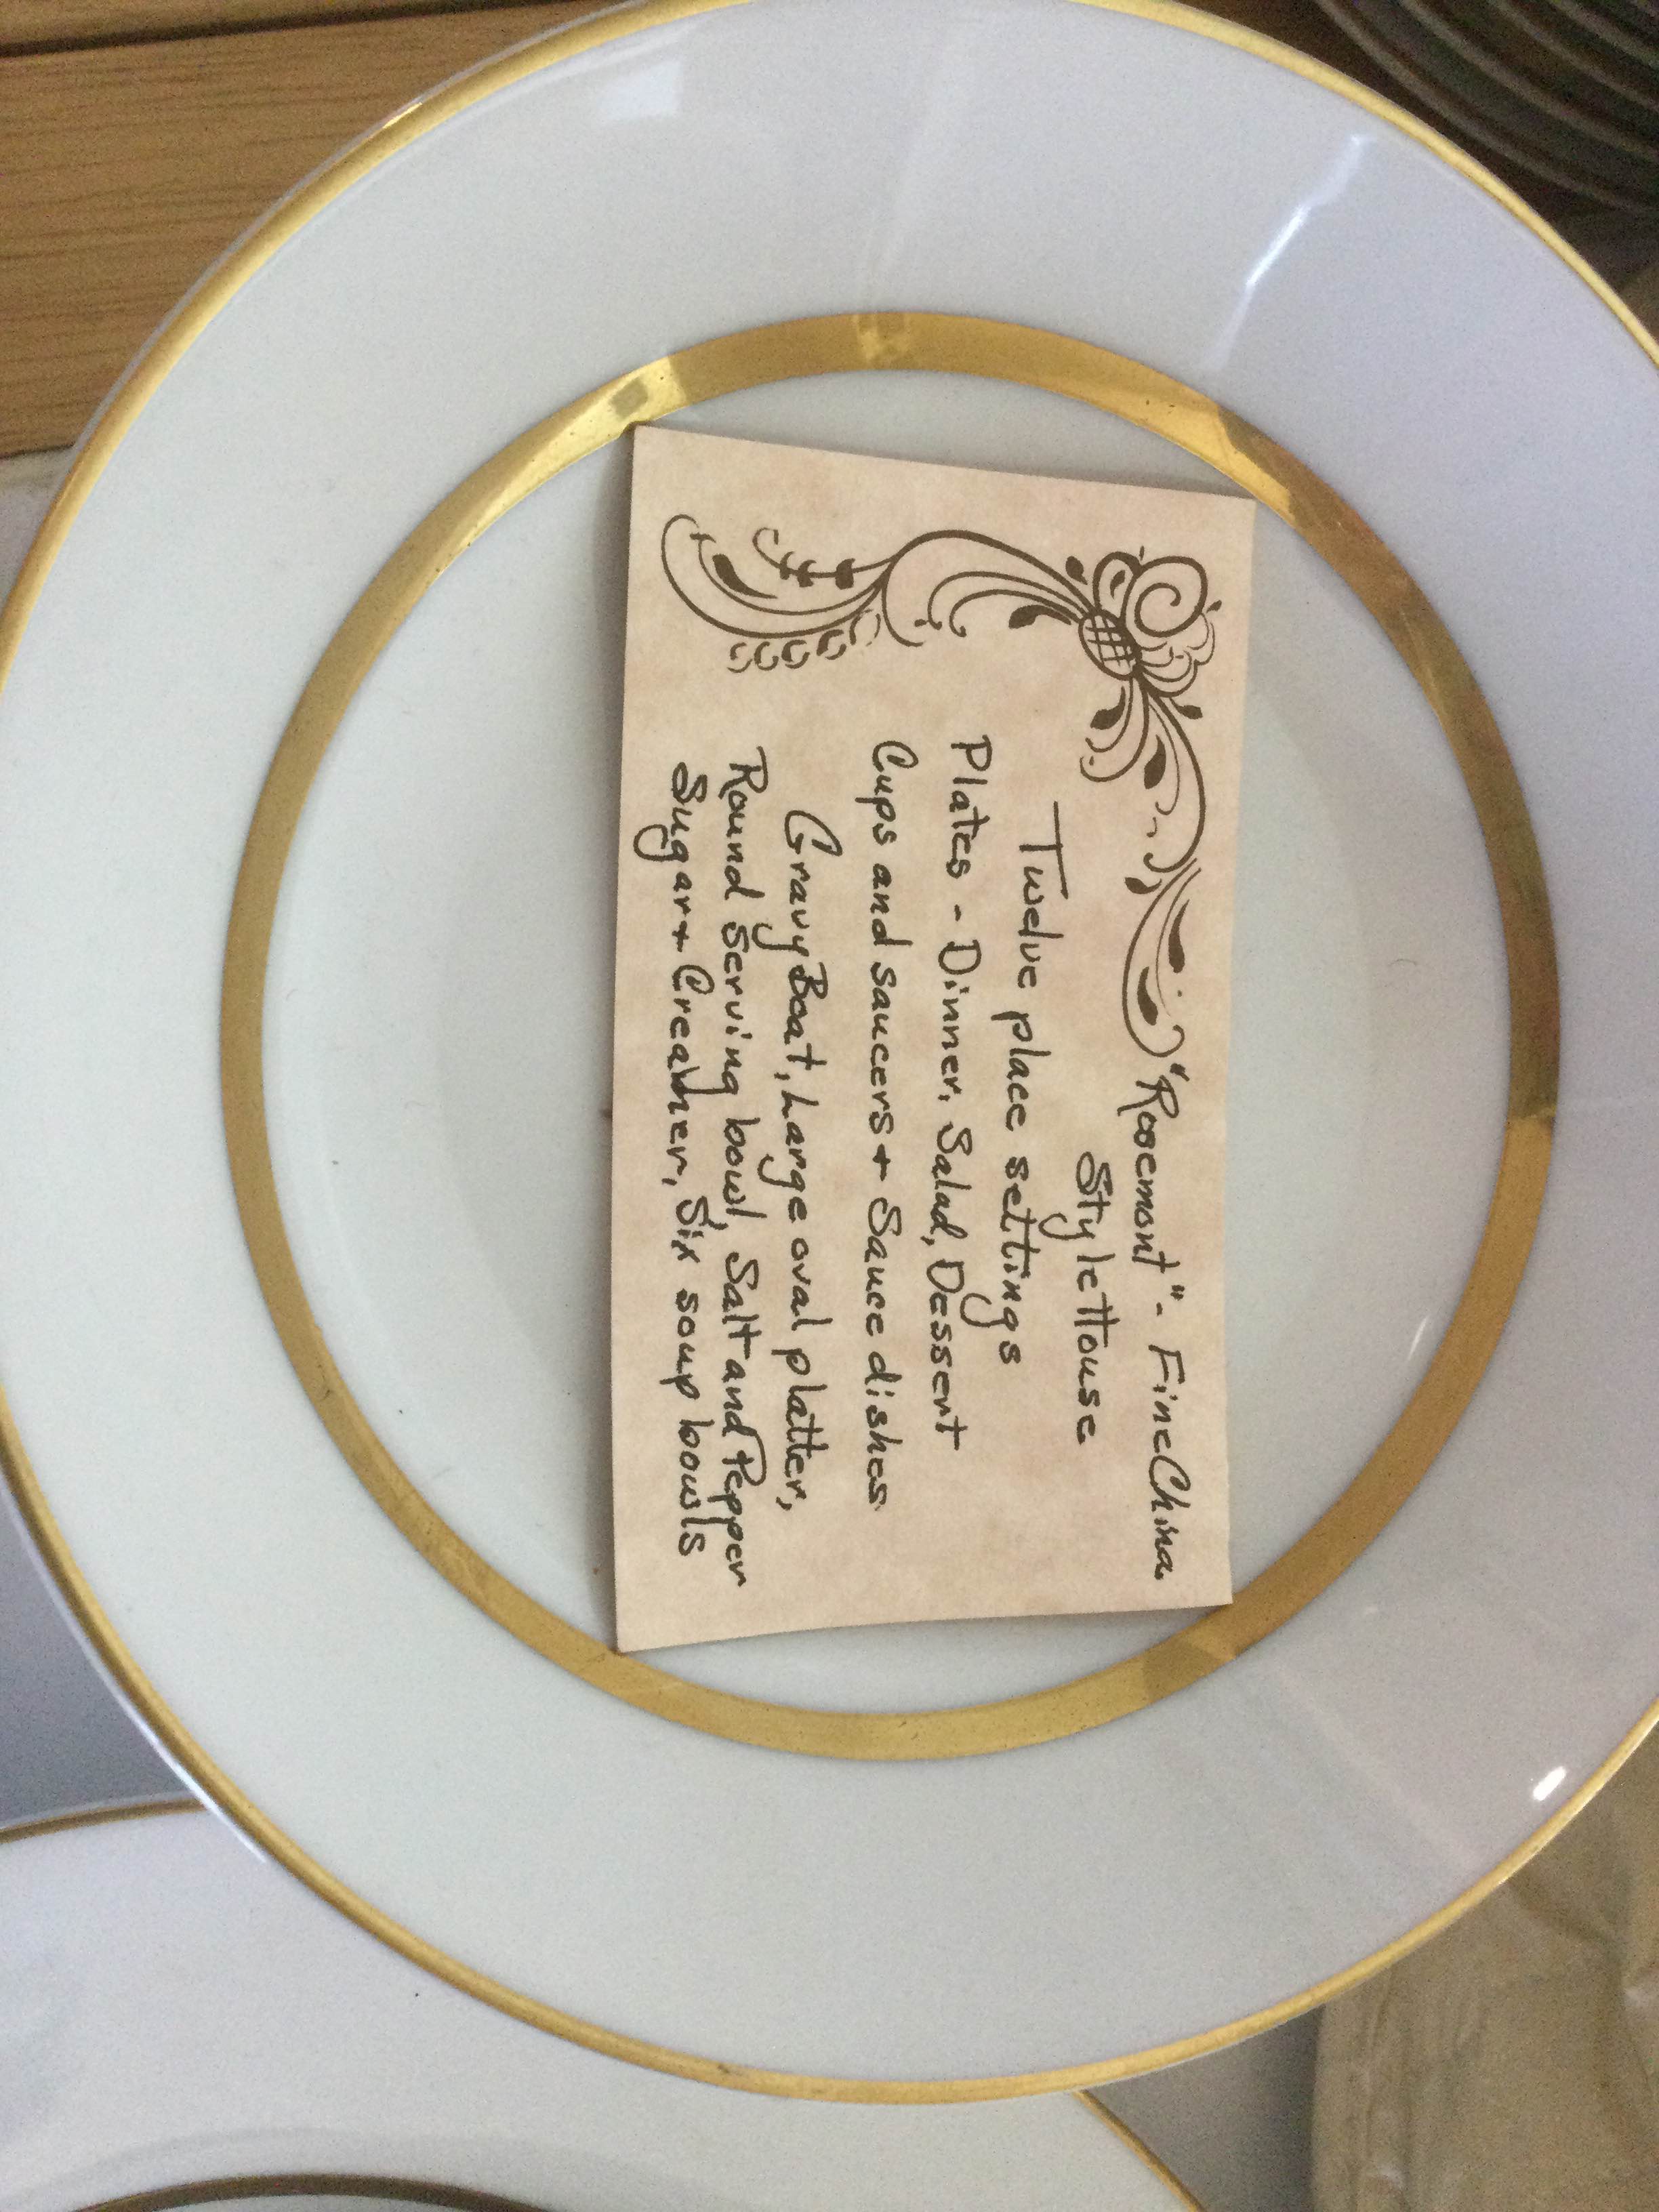 "Rosemont" - Fine China
Style House
Twelve place settings
Plates - Dinner, Salad, Dessert
Cups and saucers + Sauce dishes
Gravy Boat, Large oval platter,
Round Serving bowl, Salt and Pepper
Sugar + Creamer, Six soup bowls